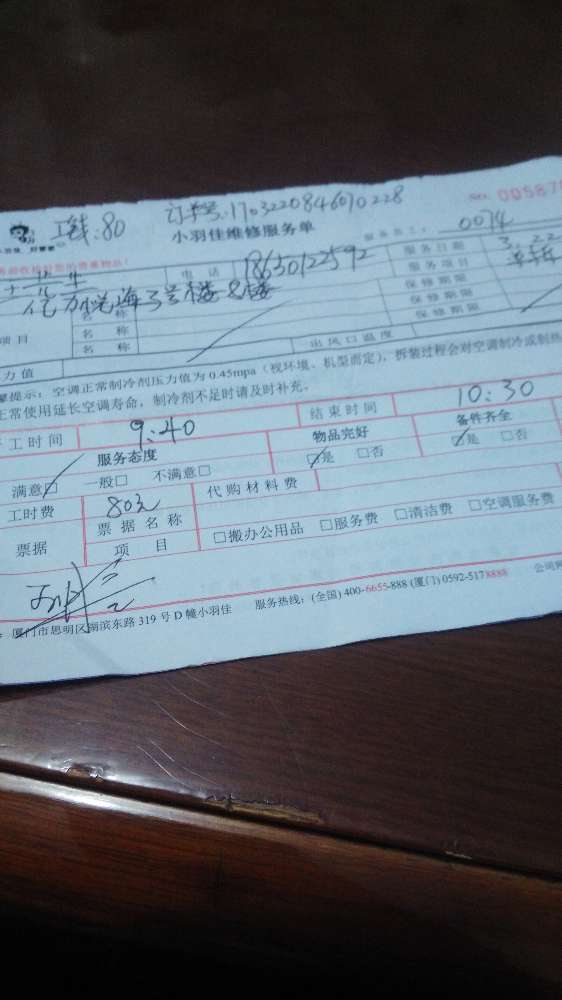 订单号:1703220846070228
NO. 009587
工钱:80
小羽佳维修服务单
服务员工: 0074
电话 18650122592
服务日期 3.22
3号楼8楼
服务项目
项目
名称
保修期限
名称
保修期限
名称
保修期限
力值
出风口温度
提示:空调正常制冷剂压力值为0.45mpa(视环境、机型而定),拆装过程会对空调制冷或制热
正常使用延长空调寿命,制冷剂不足时请及时补充。
工时间 9:40 结束时间 10:30
服务态度 物品完好 备件齐全
满意☑ 一般□ 不满意□ ☑是 □否 ☑是 □否
工时费 80元 代购材料费
票据 票据名称 □搬办公用品 □服务费 □清洁费 □空调服务费
项目
厦门市思明区湖滨东路319号D幢小羽佳 服务热线:(全国)400-6655-888 (厦门)0592-5178888 公司网